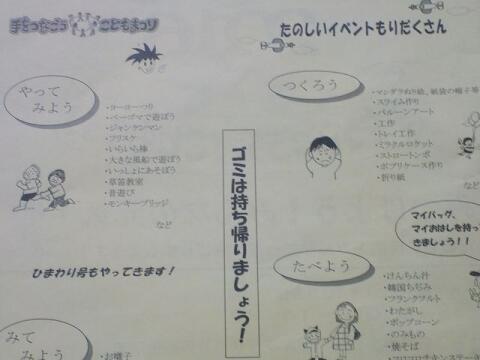 手をつなごう こどもまつり
たのしいイベントもりだくさん
やって
みよう
・ヨーヨーつり
・ベーゴマで遊ぼう
・ジャンケンマン
・フリスケ
・いらいら棒
・大きな風船で遊ぼう
・いっしょにあそぼう
・草笛教室
・昔遊び
・モンキーブリッジ
など
ひまわり号もやってきます！
みて
みよう
・お囃子
ゴミは持ち帰りましょう！
つくろう
・マンダラぬり絵、紙袋の帽子等
・スライム作り
・バルーンアート
・工作
・トレイ工作
・ミラクルロケット
・ストロートンボ
・ポプリケース作り
・折り紙
など
マイバッグ、
マイおはしを持っ
きましょう！！
たべよう
・けんちん汁
・韓国ちぢみ
・フランクフルト
・わたがし
・ポップコーン
・のみもの
・焼そば